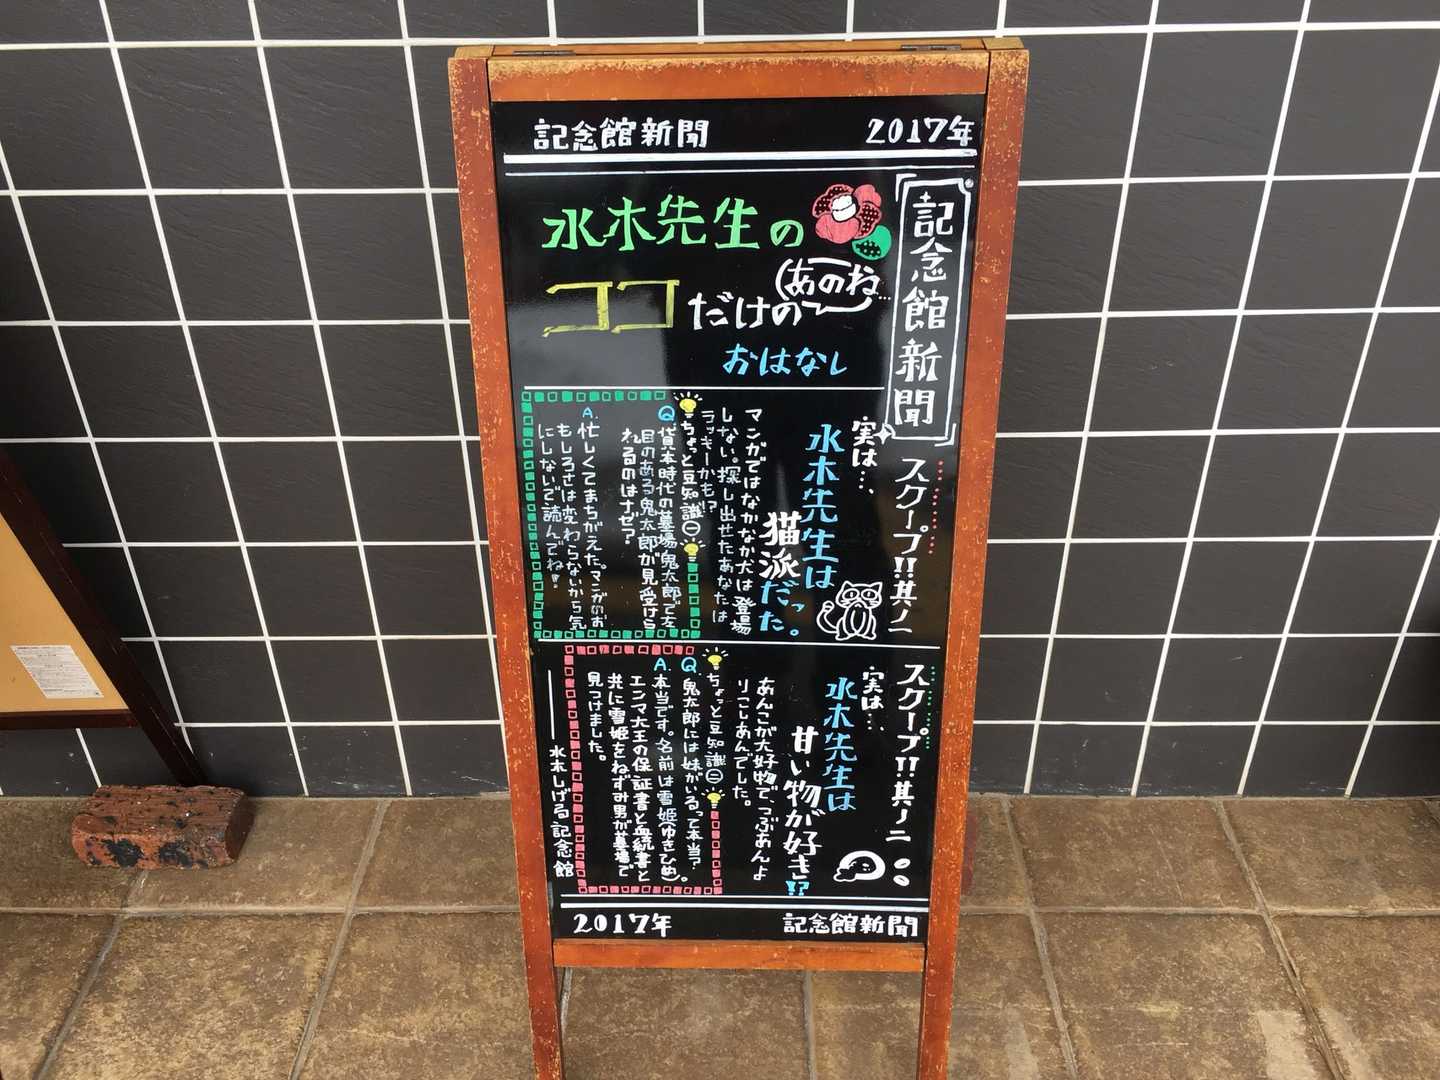 記念館新聞
2017年
記念館新聞
水木先生の
ココだけの
あのね…
おはなし
スクープ!!其ノ一
実は…、
水木先生は
猫派だった。
マンガではなかなか犬は登場
しない。探し出せたあなたは
ラッキーかも!?
ちょっと豆知識㊀
Q.貸本時代の墓場鬼太郎で左
目のある鬼太郎が見受けら
れるのはナゼ?
A.忙しくてまちがえた。マンガのお
もしろさは変わらないから気
にしないで読んでね!
スクープ!!其ノ二
実は…、
水木先生は
甘い物が好き!?
あんこが大好物で、つぶあんよ
りこしあんでした。
ちょっと豆知識㊁
Q.鬼太郎には妹がいるって本当?
A.本当です。名前は雪姫(ゆきひめ)。
エンマ大王の保証書と血統書と
共に雪姫をねずみ男が墓場で
見つけました。
水木しげる記念館
2017年
記念館新聞